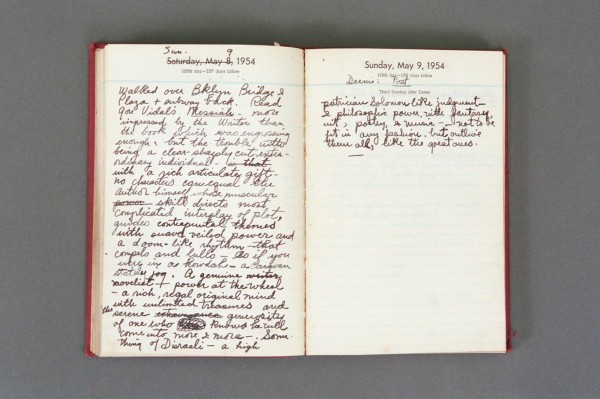 Sun. 9
Saturday, May 8, 1954
128th day—237 days follow
Walked over Bklyn Bridge &
Plaza & subway back. Read
Gore Vidal's Messiah. more
impressed by the Writer than
the book which was engrossing
enough, but the trouble with
being a clear-sharply cut, extra-
ordinary individual. is that
with a rich articulate gift
no characters can equal the
author himself whose muscular
power skill directs most
complicated interplay of plot,
guides contrapuntal themes
with suave veiled power and
a doom-like rhythm that
compels and lulls – as if you
were in a Howdah – a
stately jog. A genuine writer,
novelist + power at the wheel
– a rich, regal original mind
with unlimited treasures and
the serene generosities
of one who knows he will
come into more & more –. Some-
thing of Disraeli – a high
Sunday, May 9, 1954
129th day—236 days follow
Third Sunday after Easter
patrician Solomon like judgment
& philosophic power, with fantasy,
wit, poetry, & music – not to be
fit in any fashion. but outlive
them all, like the great ones.